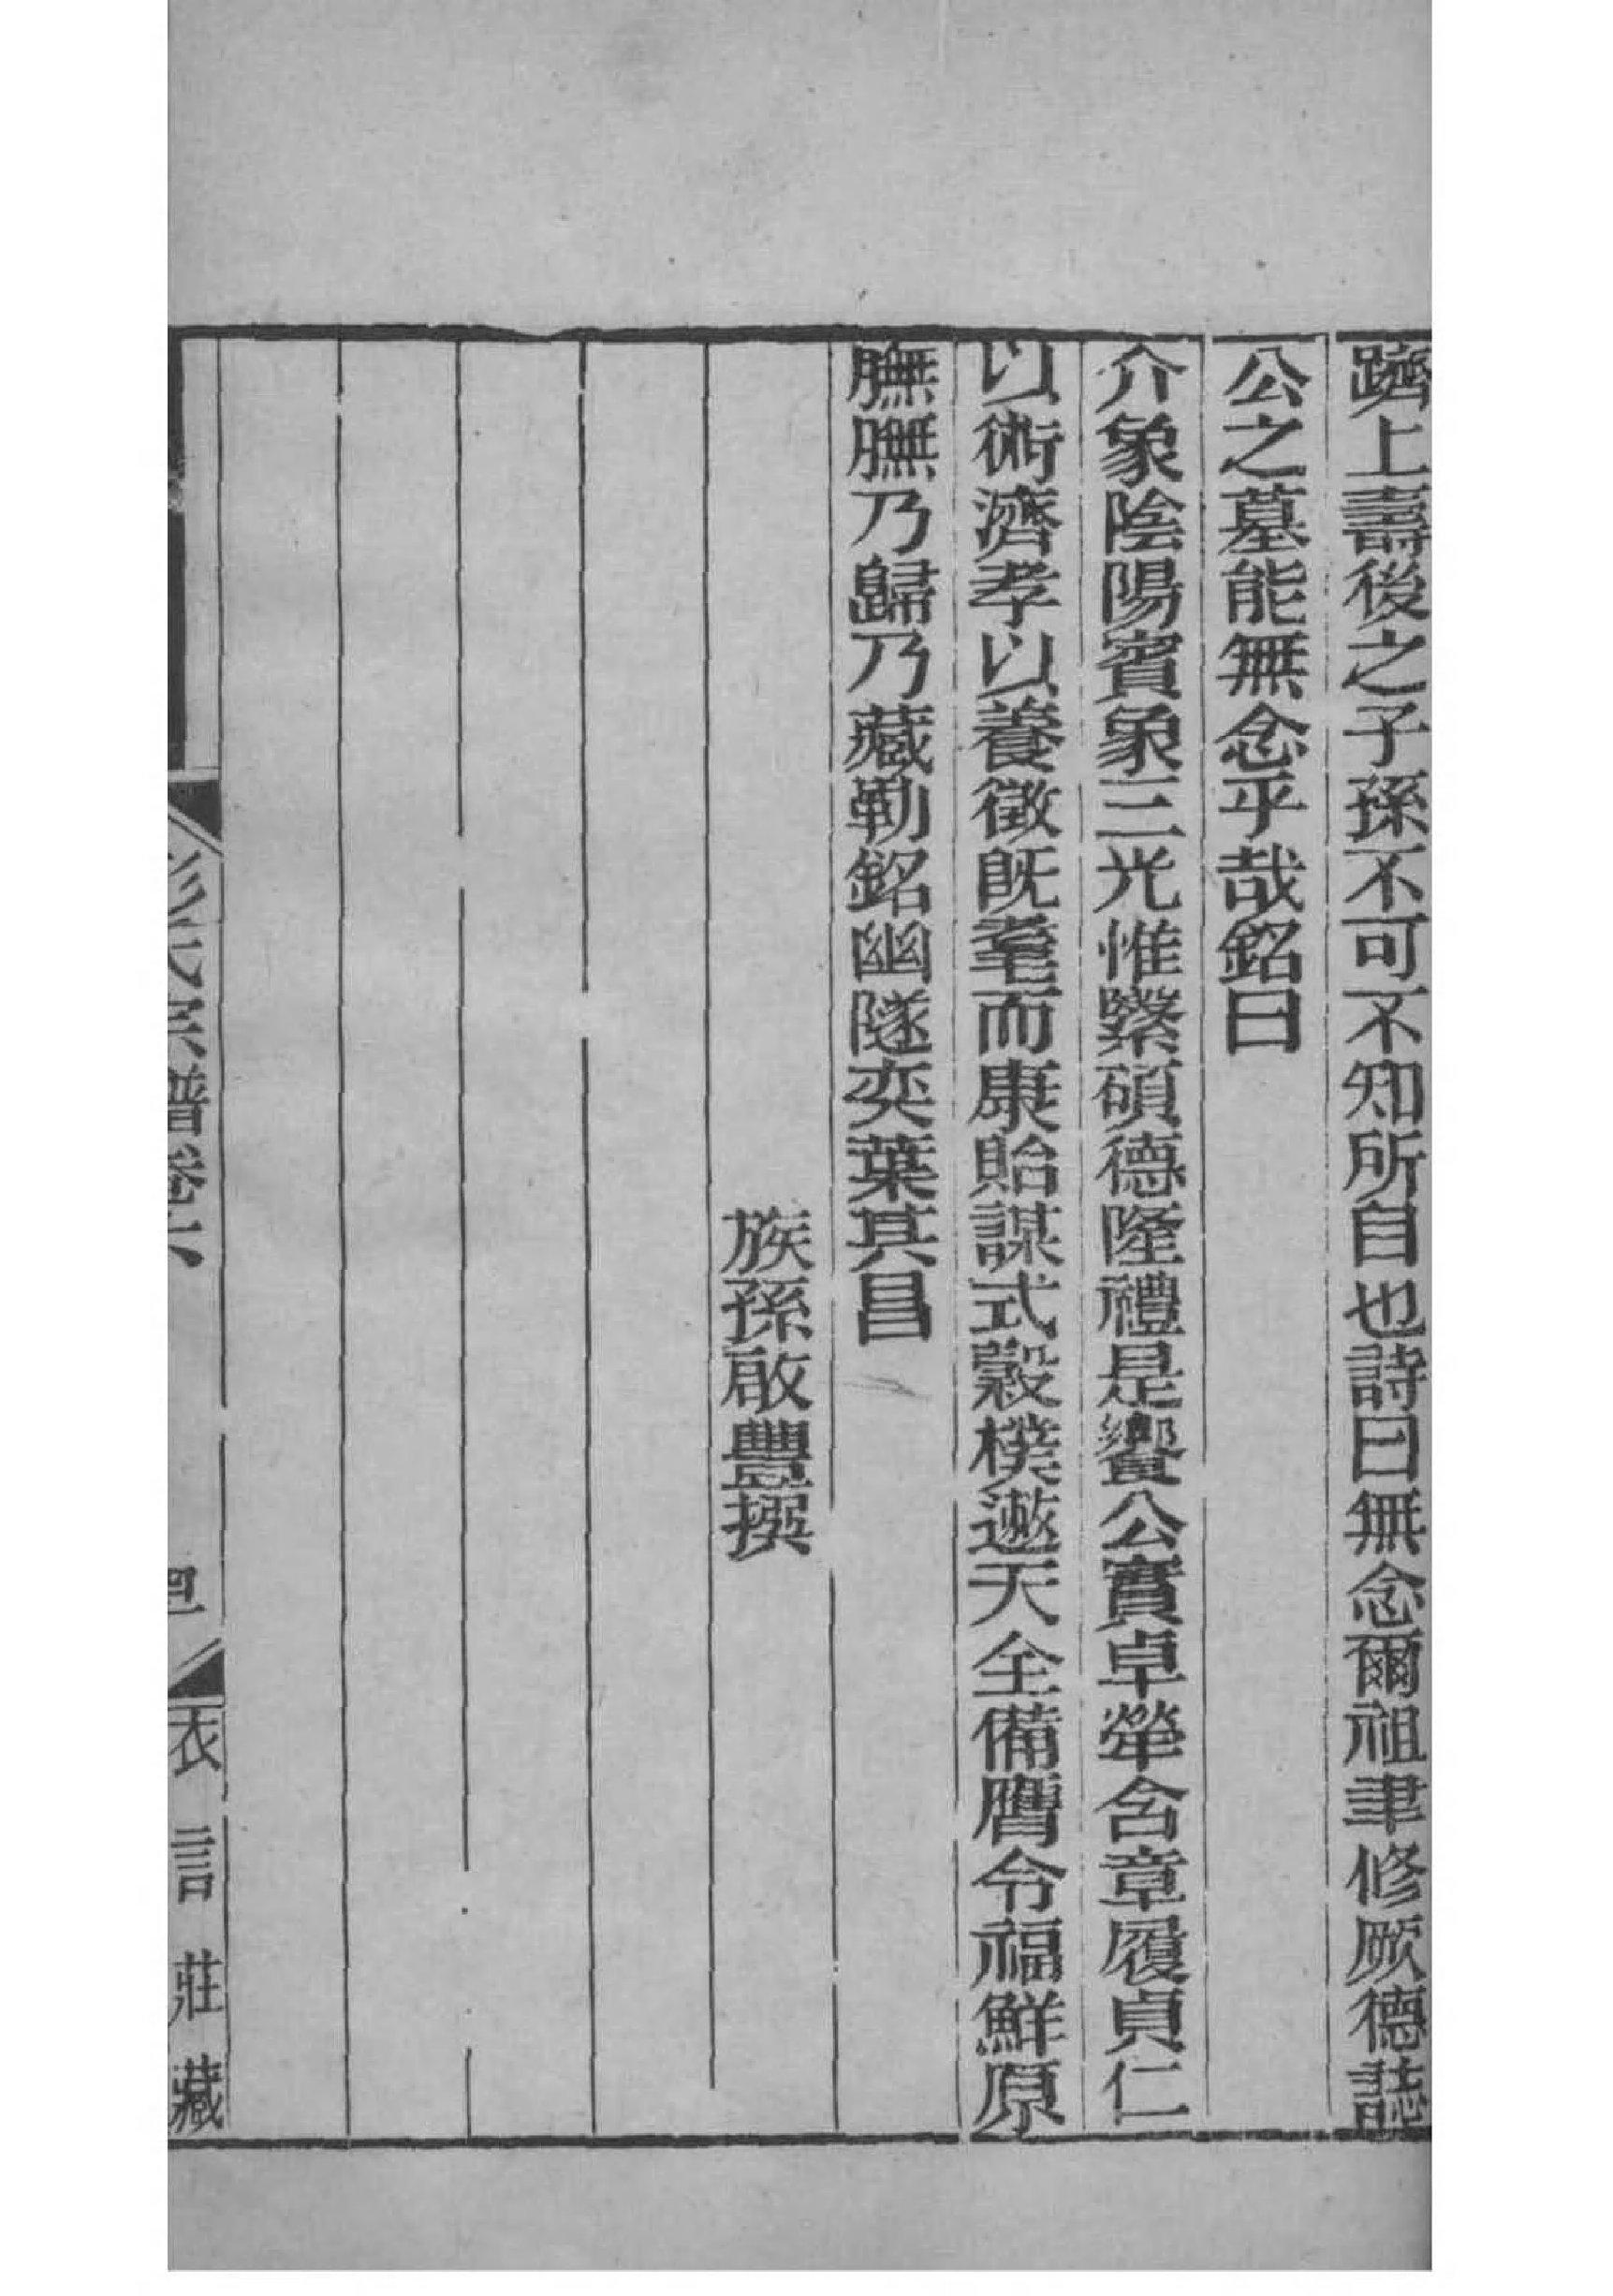 躋上壽後之子孫不可不知所自也詩曰無念爾祖聿修厥德誌
公之墓能無念乎哉銘曰
介象陰陽賓象三光惟繄碩德隆禮是饗公實卓犖含章履貞仁
以術濟孝以養徵既耄而康貽謀式穀樸遬天全備膺令福鮮原
膴膴乃歸乃藏勒銘幽隧奕葉其昌
族孫啟豐撰
彭氏宗譜卷六
四
衣言莊藏